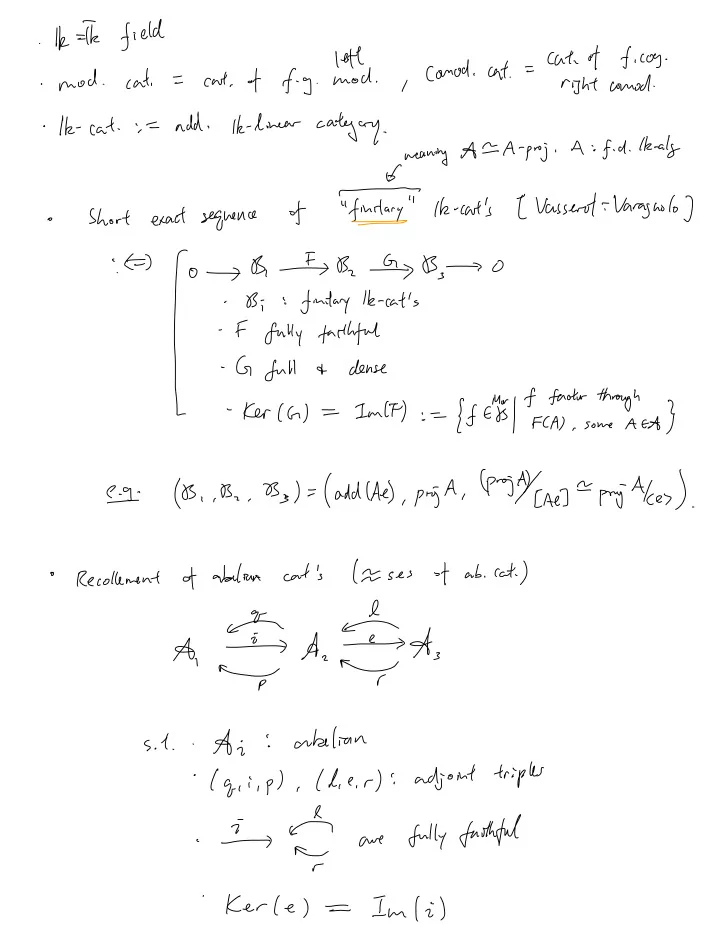 · 𝕜 = 𝕜̄ field
· mod. cat. = cat. of f.g. left mod. , comod. cat. = cat. of f.cog. right comod.
· 𝕜-cat. := add. 𝕜-linear category.
meaning 𝒜 ≃ A-proj. A : f.d. 𝕜-alg
· Short exact sequence of "finitary" 𝕜-cat's [Vasserot-Varagnolo]
:⇔ 0 → ℬ₁ →F ℬ₂ →G ℬ₃ → 0
· ℬᵢ : finitary 𝕜-cat's
- F fully faithful
- G full & dense
- Ker(G) = Im(F) := {f ∈ Mor ℬ | f factor through F(A), some A ∈ 𝒜}
e.g. (ℬ₁, ℬ₂, ℬ₃) = (add(Ae), proj A, (proj A)/[Ae] ≃ proj A/<e>).
· Recollement of abelian cat's (≈ ses of ab. cat.)
q l
𝒜₁ i 𝒜₂ e 𝒜₃
p r
s.t. · 𝒜ᵢ : abelian
· (q,i,p), (l,e,r) : adjoint triples
· i l r are fully faithful
· Ker(e) = Im(i)